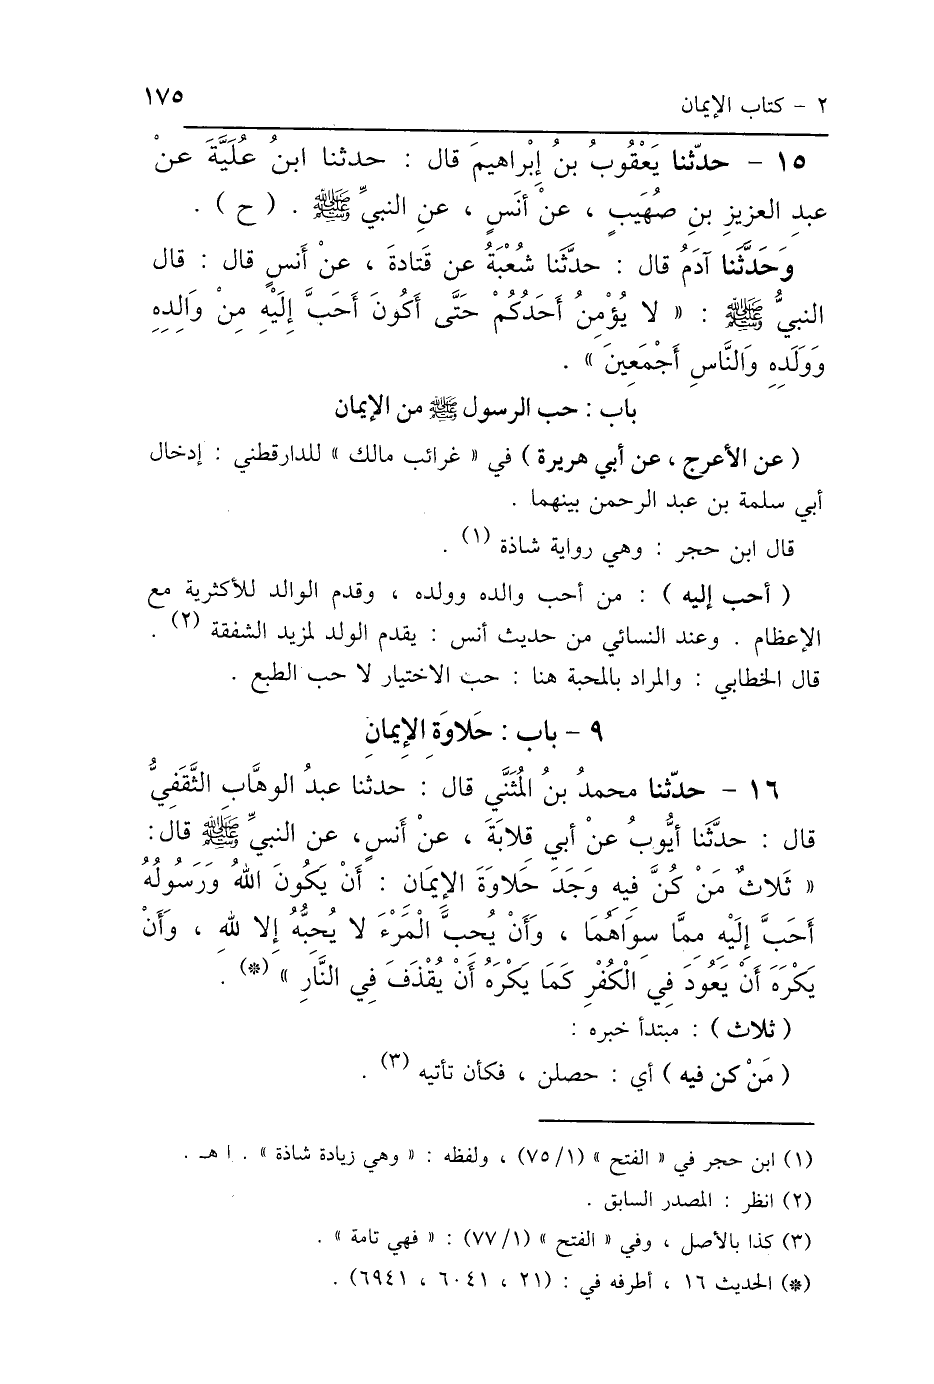 ٢ - كتاب الإيمان ١٧٥
١٥ - حدّثنا يَعْقُوبُ بنُ إِبْراهيمَ قال : حدثنا ابنُ عُلَيَّةَ عنْ
عبدِ العزيزِ بنِ صُهَيبٍ ، عنْ أنَسٍ ، عنِ النبيِّ ﷺ . ( ح ) .
وَحَدَّثَنا آدَمُ قال : حدثَّنَا شُعْبَةُ عن قَتادةَ ، عنْ أَنسٍ قال : قال
النبيُّ ﷺ : « لا يُؤْمِنُ أَحَدُكُمْ حَتَّى أَكُونَ أَحَبَّ إِلَيْهِ مِنْ وَالِدِهِ
وَوَلَدِهِ وَالنَّاسِ أَجْمَعِينَ » .
باب : حب الرسول ﷺ من الإيمان
( عن الأعرج ، عن أبي هريرة ) في « غرائب مالك » للدارقطني : إدخال
أبي سلمة بن عبد الرحمن بينهما .
قال ابن حجر : وهي رواية شاذة (١) .
( أحب إليه ) : من أحب والده وولده ، وقدم الوالد للأكثرية مع
الإعظام . وعند النسائي من حديث أنس : يقدم الولد لمزيد الشفقة (٢) .
قال الخطابي : والمراد بالمحبة هنا : حب الاختيار لا حب الطبع .
٩ - باب : حَلاوَةِ الإِيمانِ
١٦ - حدّثنا محمدُ بنُ المُثَنَّي قال : حدثنا عبدُ الوهَّابِ الثَّقَفِيُّ
قال : حدَّثَنَا أيُّوبُ عنْ أبي قِلابَةَ ، عنْ أنَسٍ، عن النبيِّ ﷺ قال:
« ثَلاثٌ مَنْ كُنَّ فِيهِ وَجَدَ حَلاوَةَ الإيمَانِ : أَنْ يَكُونَ اللهُ وَرَسُولُهُ
أَحَبَّ إِلَيْهِ مِمَّا سِوَاهُمَا ، وَأَنْ يُحِبَّ الْمَرْءَ لا يُحِبُّهُ إِلا للهِ ، وَأَنْ
يَكْرَهَ أَنْ يَعُودَ فِي الْكُفْرِ كَمَا يَكْرَهُ أَنْ يُقْذَفَ فِي النَّارِ » (*) .
( ثلاث ) : مبتدأ خبره :
( مَنْ كن فيه ) أي : حصلن ، فكأن تأتيه (٣) .
(١) ابن حجر في « الفتح » (١/ ٧٥) ، ولفظه : « وهي زيادة شاذة » . ا هـ .
(٢) انظر : المصدر السابق .
(٣) كذا بالأصل ، وفي « الفتح » (١/ ٧٧) : « فهي تامة » .
(*) الحديث ١٦ ، أطرفه في : (٢١ ، ٦٠٤١ ، ٦٩٤١) .